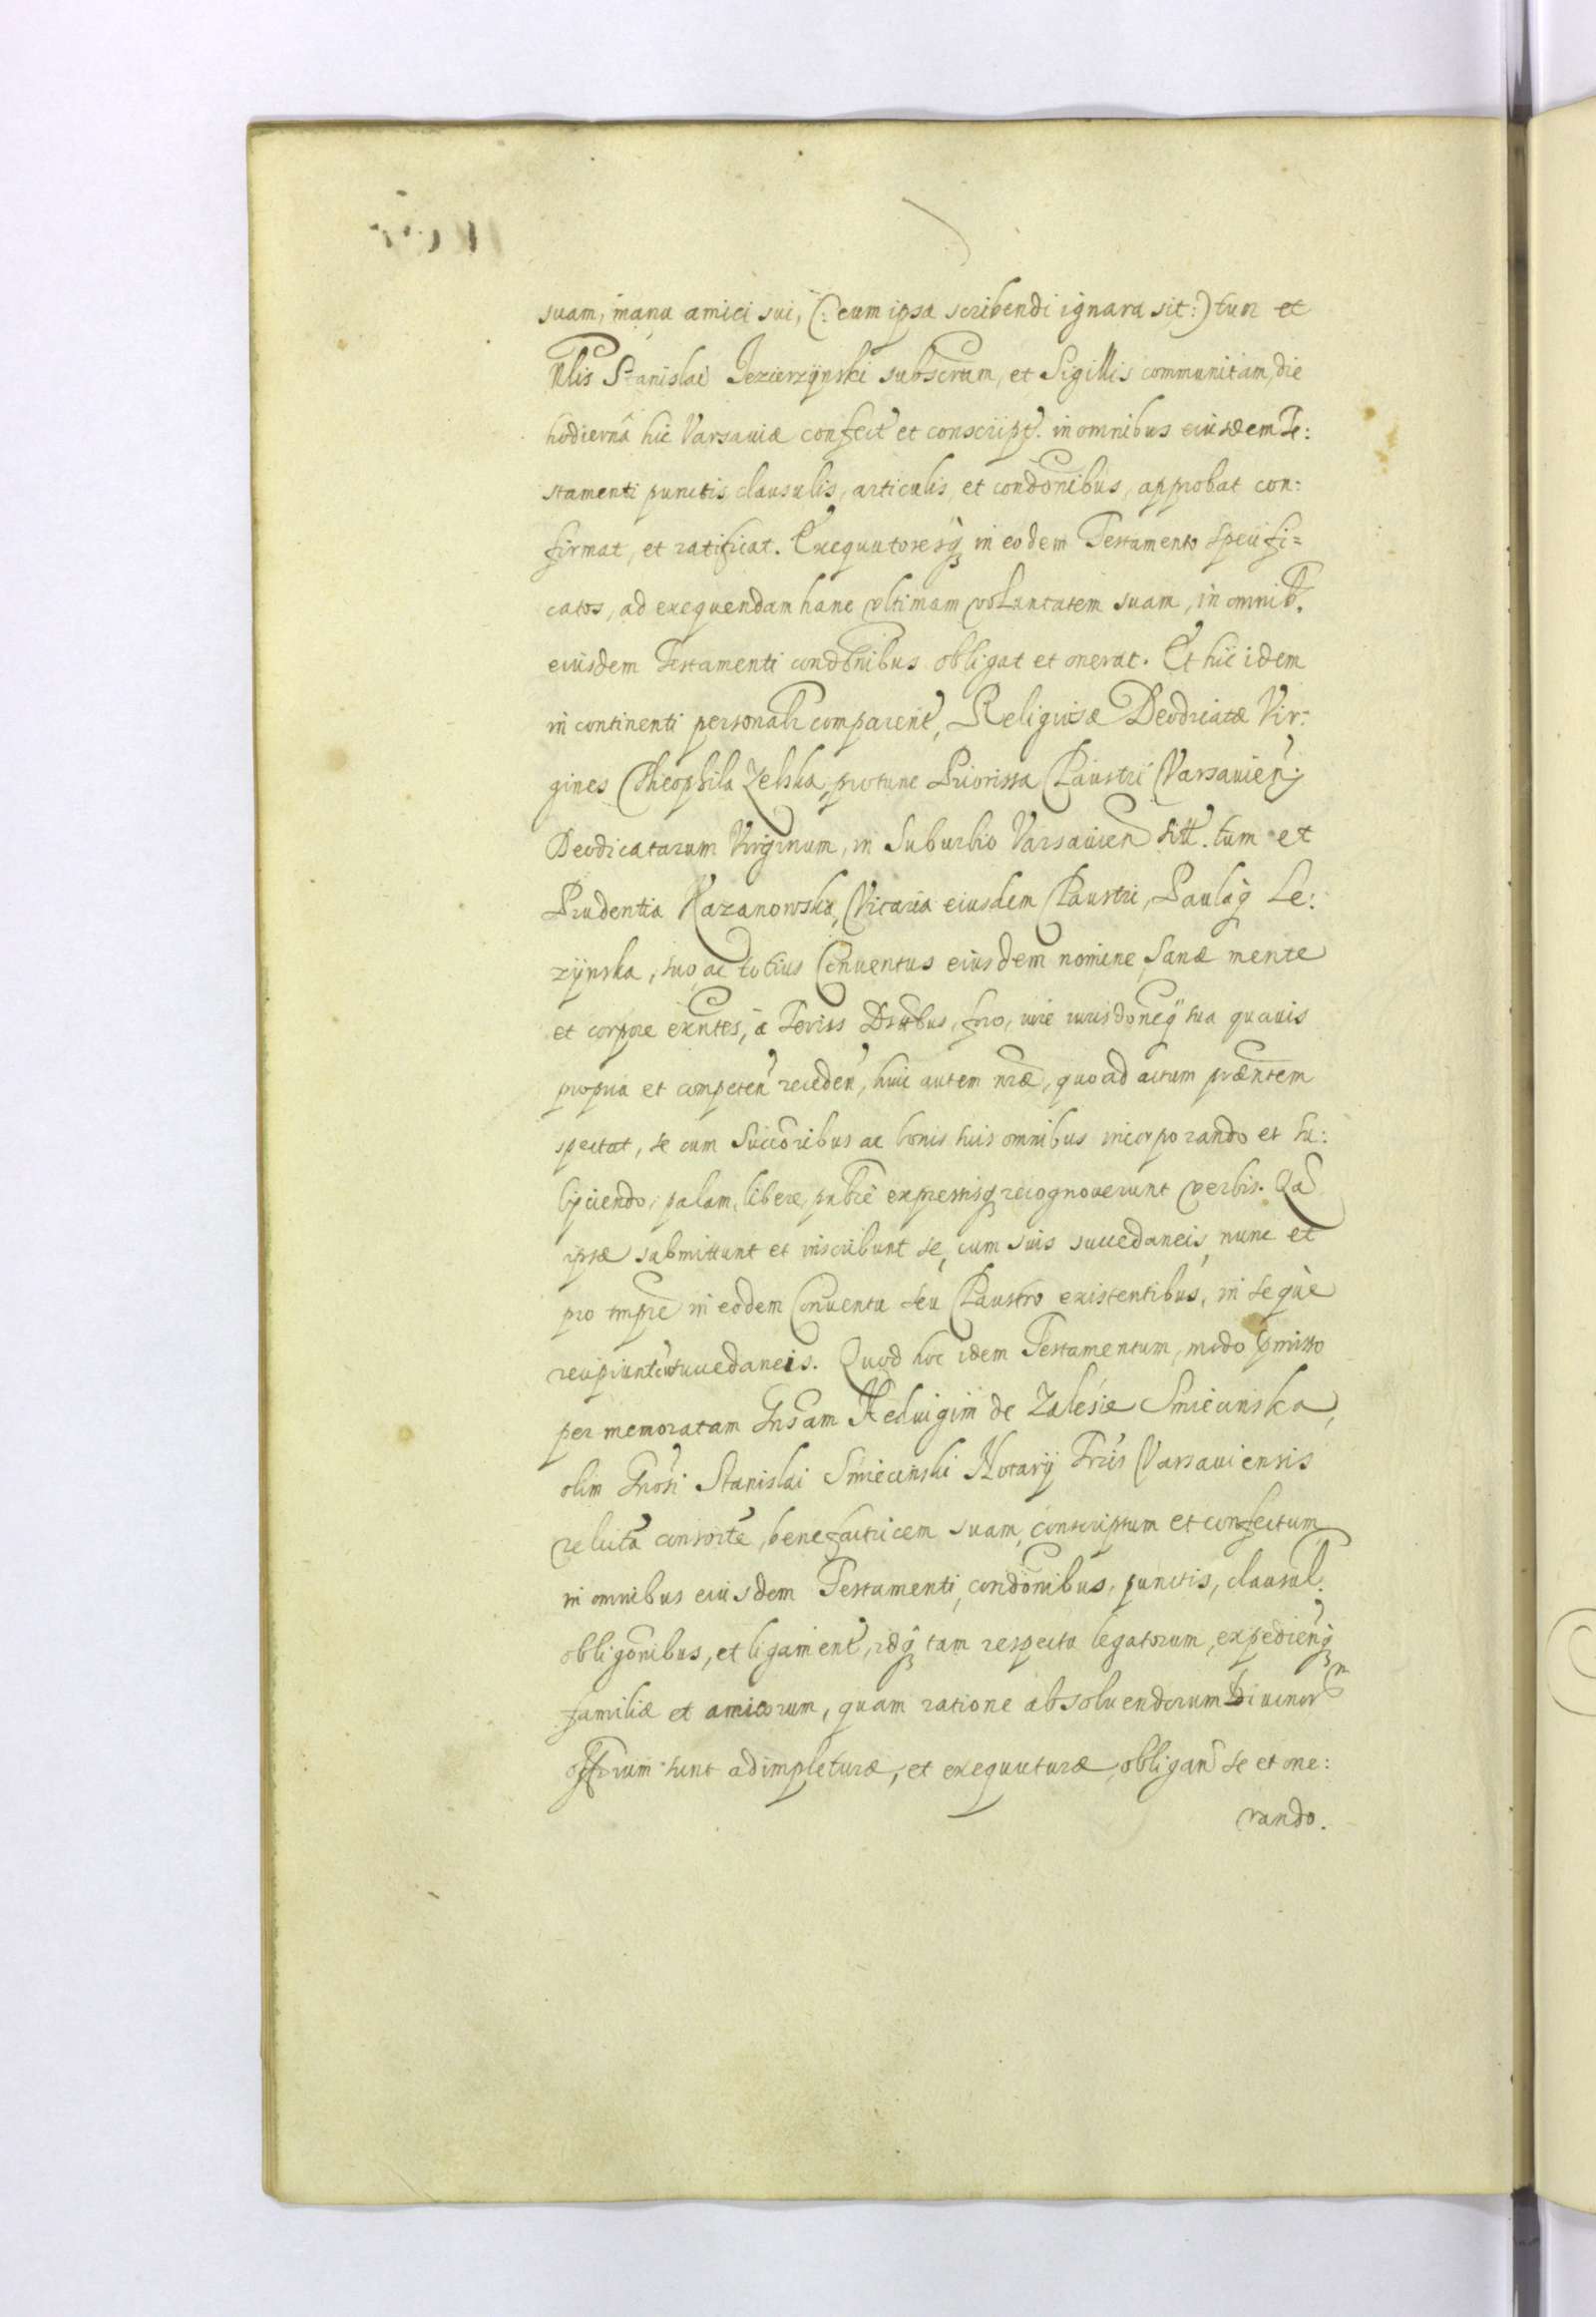 suam, manu amici sui, (: cum ipsa scribendi ignara sit :) tum et
Nlis Stanislai Jezierzÿnski subscrtam, et Sigillis communitam, die
hodiernâ hic Varsauiæ confecit et conscript. in omnibus eiusdem Te:
stamenti punctis, clausulis, articulis, et condonibus, approbat con:
firmat, et ratificat. Exequutoresq in eodem Testamento specifi=
catos, ad exequendam hanc vltimam voluntatem suam, in omnib.
eiusdem Testamenti condonibus obligat et onerat. Et hic idem
in continenti personalr comparent, Religiosæ Deodicatæ Vir:
gines Theophila Zelska, protunc Priorissa Claustri Varsauien,
Deodicatarum Virginum, in Suburbio Varsauien sitt. tum et
Prudentia Kazanowska, Vicaria eiusdem Claustri, Paulaq Le:
zÿnska, suo ac totius Conuentus eiusdem nomine, sanæ mente
et corpore exntes, à Teriss Dstibus, foro, iure iurisdoneq sua quauis
propria et competen receden, huic autem nræ, quo ad actum præntem
spectat, se cum Succoribus ac bonis suis omnibus incorporando et su:
bÿciendo, palam, libere, publce expressisq recognouerunt verbis. Qa
ipsæ submittunt et inscribunt se, cum suis succedaneis, nunc et
pro tmpre in eodem Conuentu seu Claustro existentibus, in seque
recipiunt succedaneis. Quod hoc idem Testamentum, modo pmisso
per memoratam Gnsam Heduigim de Zalesie Smiecinska,
olim Gnosi Stanislai Smiecinski Notarÿ Trris Varsauiensis
relicta consorte, benefactricem suam, conscriptum et confectum,
in omnibus eiusdem Testamenti, condonibus, punctis, clausul.
obligonibus, et ligament, idq tam respectu legatorum, expedienq
familiæ et amicorum, quam ratione absoluendorum Diuinor
offorum sunt adimpleturæ, et exequuturæ, obligan se et one:
rando.